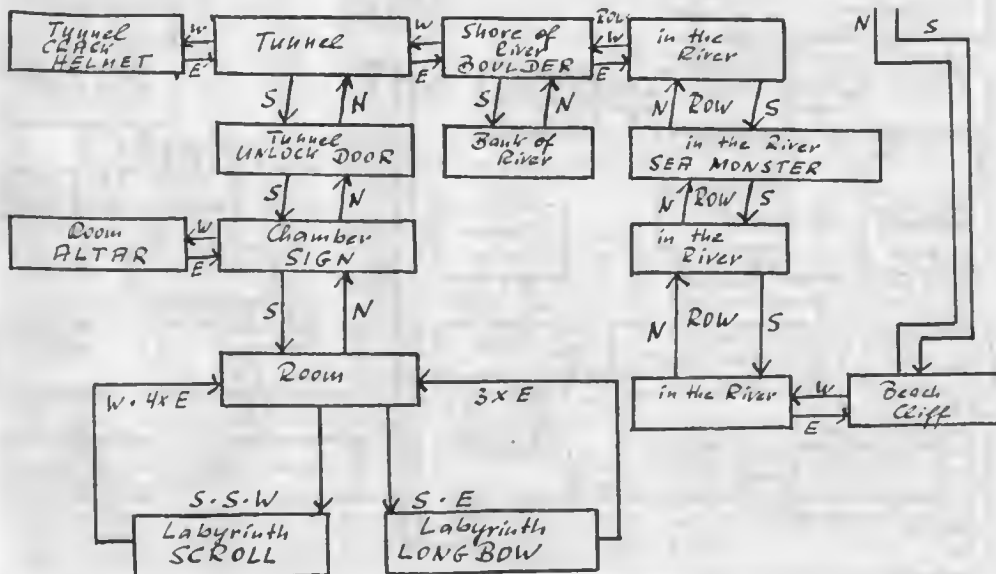 Tunnel
CLACK
HELMET
W
E
Tunnel
W
E
Shore of
River
BOULDER
ROW
W
E
in the
River
N
S
S
N
S
N
N
ROW
S
Tunnel
UNLOCK DOOR
Bank of
River
in the River
SEA MONSTER
S
N
N
ROW
S
Room
ALTAR
W
E
Chamber
SIGN
in the
River
S
N
N
ROW
S
Room
W. 4x E
3 x E
in the River
W
E
Beach
Cliff
S. S. W
S. E
Labyrinth
SCROLL
Labyrinth
LONG BOW